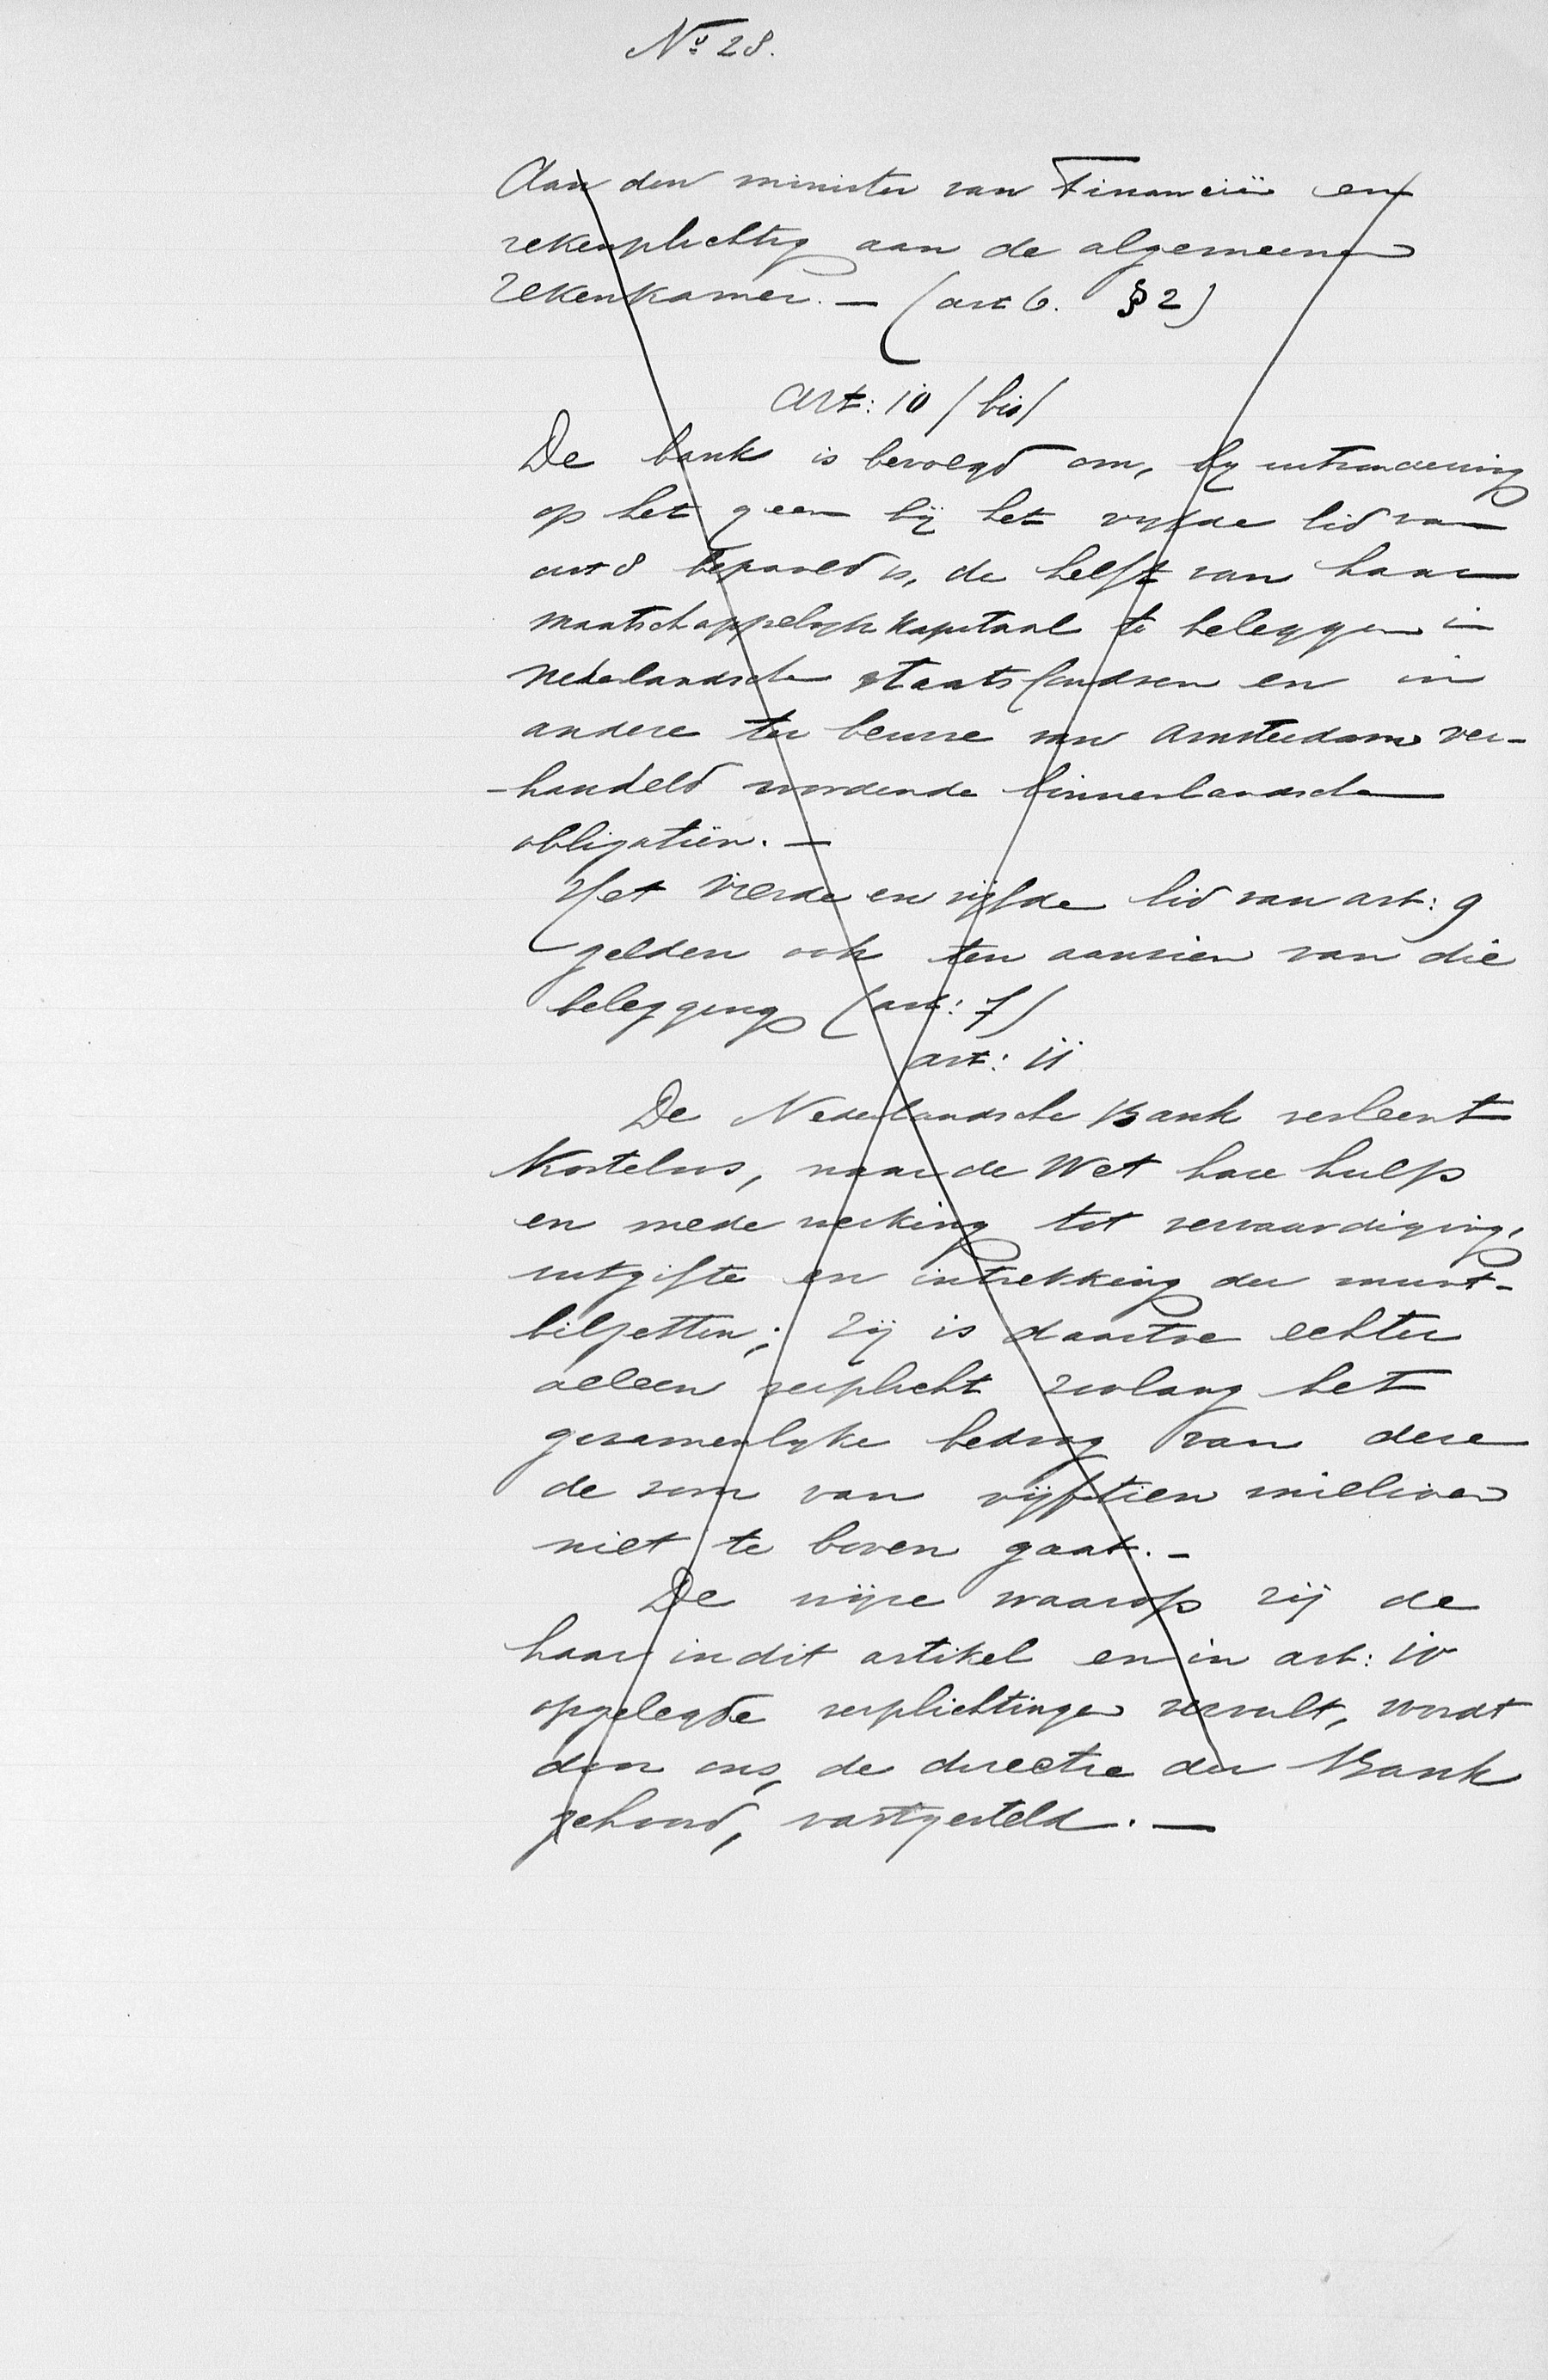 No 28.
Aan den minister van Financiën en
rekenplichtig aan de algemeene
rekenkamer. — (art 6. § 2)
Art: 10 (bis)
De bank is bevoegd om, by uitzondering
op het geen bij het vyfde lid van
art 8 bepaald is, de helft van haar
maatschappelyk kapitaal te beleggen in
Nederlandsche staatsfondsen en in
andere ter beurse van Amsterdam ver-
-handeld wordende binnenlandsche
obligatiën. —
Het vierde en vijfde lid van art: 9
gelden ook ten aanzien van die
belegging (art: 7)
art: 11
De Nederlandsche Bank verleent
kosteloos, naar de Wet hare hulp
en medewerking tot vervaardiging,
uitgifte en intrekking der munt-
biljetten; zij is daartoe echter
alleen verplicht zoolang het
gezamenlyke bedrag van deze
de som van vijftien millioen
niet te boven gaat. —
De wijze waarop zij de
haar in dit artikel en in art: 10
opgelegde verplichtingen vervult, wordt
door ons, de directie der Bank
gehoord, vastgesteld. —